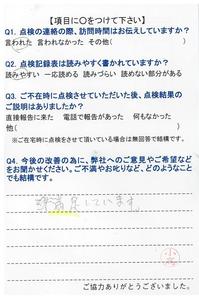 【項目に○をつけて下さい】
Q1. 点検の連絡の際、訪問時間はお伝えしていますか？
言われた 言われなかった その他( )
Q2. 点検記録表は読みやすく書かれていますか？
読みやすい 一応読める 読みづらい 読めない部分がある
Q3. ご不在時に点検させていただいた後、点検結果の
ご説明はありましたか？
直接報告に来た 電話で報告があった 何もなかった
他( )
※ご在宅時に点検をさせて頂いている場合は無回答で結構です。
Q4. 今後の改善の為に、弊社へのご意見やご希望など
をお聞かせください。ご不満やお叱りなど、どのようなこと
でも結構です。
満足しています。
ご協力ありがとうございました。